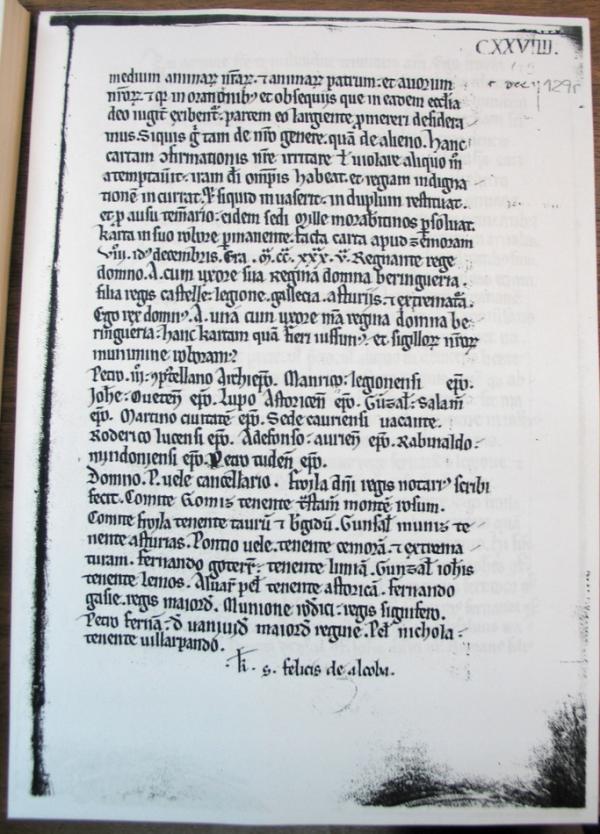 CXXVIIIJ.
medium animarꝝ nr̃arꝝ ⁊ animarꝝ patrum et auorum
nr̃orꝝ ⁊ ꝙ in orationibꝰ et obsequijs que in eadem ecclia
deo iugit̃ exibent̃ partem eo largiente ꝓmereri desidera
mus. Siquis g̃ tam de nr̃o genere quã de alieno. Hanc
cartam ɔfirmationis nr̃e irritare ł uiolare aliquo m̊
atemptauit. iram di omp̃is habeat. et regiam indigna
tionẽ incurrat. ⁊ siquid inuaserit. in duplum restituat.
et ꝓ ausu tem̃ario. eidem sedi mille morabitinos ꝑsoluat.
karta in suo robore ꝑmanente. facta carta apud zemoram
viij. idꝰ decembris. Era. M. CC. xxx. v. Regnante rege
domno. A. cum uxore sua Regina domna beringueria.
filia regis castelle. legione. gallecia. asturijs. ⁊ extremat̃a.
Ego rex domnꝰ. A. una cum uxore m̃a regina domna be
ringueria. hanc kartam quã fieri iussimꝰ. et sigillorꝝ nr̃orꝝ
munimine roboramꝰ
Petro. iij. ɔpostellano Archiep̃o. Manrico. legionensi ep̃o.
Johe. Oueteñ ep̃o. Lupo Astoriceñ ep̃o. Gũzal. Salam̃
ep̃o. Martino ciuitateñ ep̃o. Sede cauriensi uacante.
Roderico lucensi ep̃o. Adefonso. aurieñ ep̃o. Rabinaldo.
mindoniensi ep̃o. Petro tudeñ ep̃o.
Domno. P. uele cancellario. froyla dñi regis notarꝰ scribi
fecit. Comite Gomis tenente t̃stam̃ montẽ rosum.
Comite froyla tenente taurũ ⁊ b̃gidũ. Gunsal munis te
nente asturias. Pontio uele. tenente cemorã. ⁊ extrema
turam. fernando goterr̃. tenente limiã. Gunzal iohis
tenente lemos. Aluar̃ pel tenente astoricã. fernando
gasie. regis maiord̃. Munione rodici. regis signifero.
Petro fernã. d̃ uaniuid̃ maiord̃ regine. Pel nichola.
tenente uillarpando.
s. felicis de alcoba.